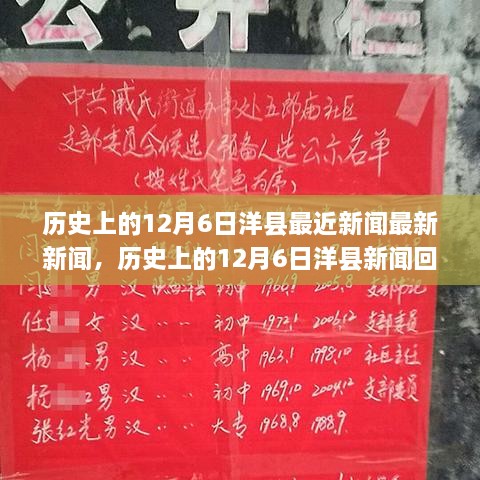 公开
中共戚氏街道办事处五郎庙社区
支部委员会候选人预备人选公示名单
(按姓氏笔画为序)
历史上的12月6日洋县最近新闻最新
新闻，历史上的12月6日洋县新闻回
闫 男 汉 陕西洋县 初中 1969.9 2005.8 支部书记
任 女 汉 〃 〃 初中 1972.1 2005.12 支部委员
杨 男 汉 〃 〃 高中 1963.1 1998.10 社区主任
杨 男 汉 〃 〃 初中 1969.10 2004.12 支部委员
张红光 男 汉 〃 〃 大专 1968.8 1988.9